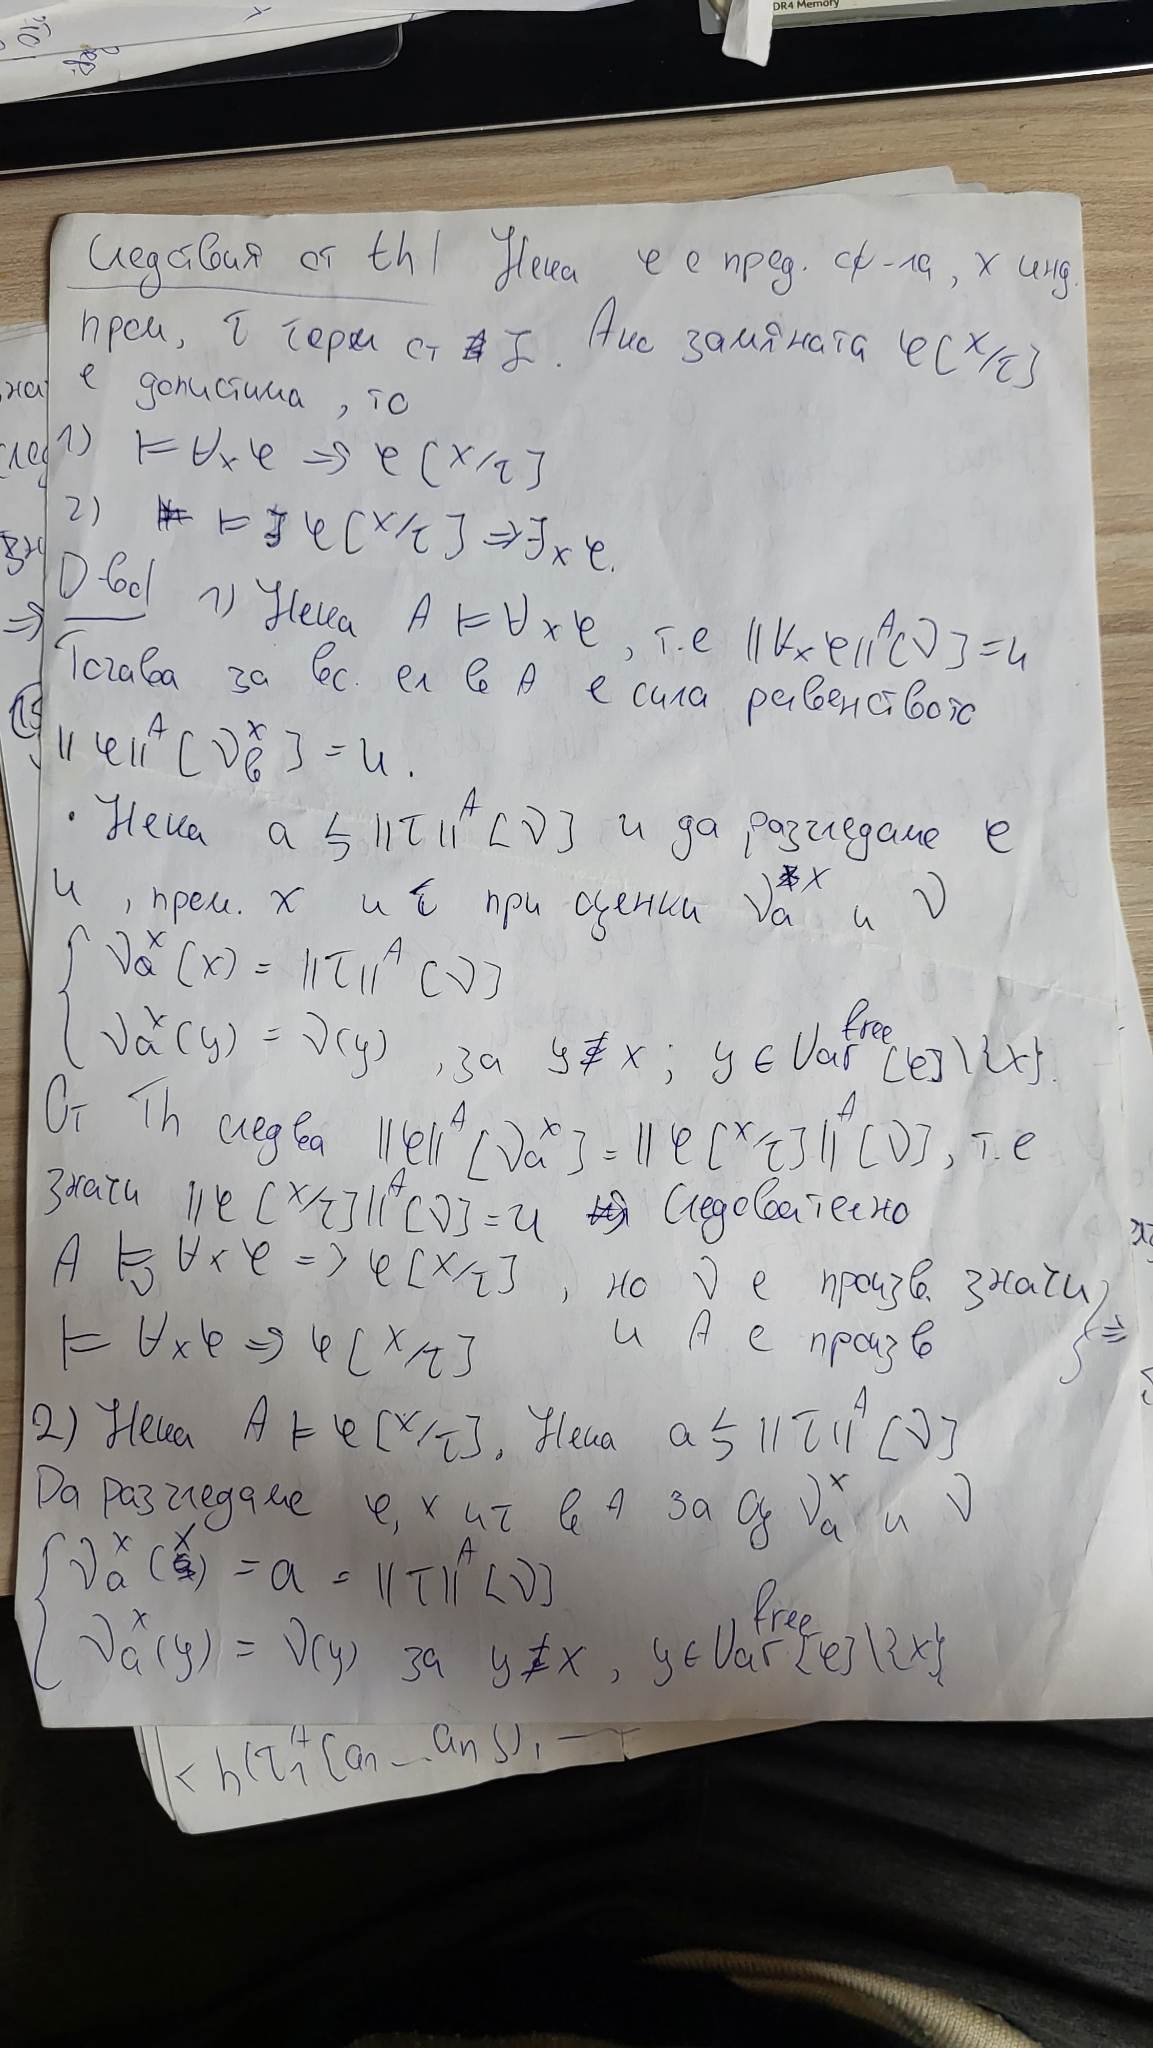 DR4 Memory
Следствия от th| Нека φ е пред. ф-ла, x инд.
пром, τ терм от L. Ако замяната φ[x/τ]
е допустима, то
1) ⊨ ∀xφ ⇒ φ[x/τ]
2) ⊨ φ[x/τ] ⇒ ∃xφ.
D-во| 1) Нека A ⊨ ∀xφ, т.е ||∀xφ||ᴬ[ν]=и
Тогава за вс. ел b в A е сила равенството
||φ||ᴬ[νᵇˣ] = и.
• Нека a ≒ ||τ||ᴬ[ν] и да разгледаме φ
и , пром. x и τ при оценки νₐˣ и ν
{ νₐˣ(x) = ||τ||ᴬ[ν]
νₐˣ(y) = ν(y) , за y≠x ; y ∈ Varᶠʳᵉᵉ[φ]\{x}.
От Th следва ||φ||ᴬ[νₐˣ] = ||φ[x/τ]||ᴬ[ν], т.е
значи ||φ[x/τ]||ᴬ[ν]=и Следователно
A ⊨ᵥ ∀xφ => φ[x/τ] , но ν е произв. значи } ⇒
⊨ ∀xφ ⇒ φ[x/τ] и A е произв
2) Нека A ⊨ φ[x/τ]. Нека a ≒ ||τ||ᴬ[ν]
Да разгледаме φ, x и τ в A за оц νₐˣ и ν
{ νₐˣ(x) = a = ||τ||ᴬ[ν]
νₐˣ(y) = ν(y) за y≠x , y ∈ Varᶠʳᵉᵉ[φ]\{x}